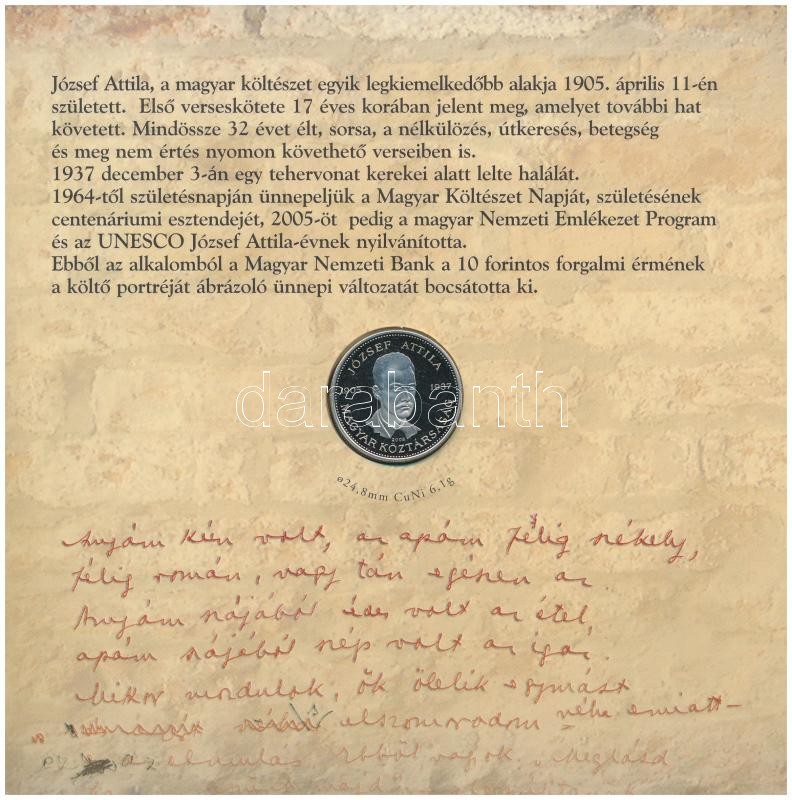 József Attila, a magyar költészet egyik legkiemelkedőbb alakja 1905. április 11-én
született. Első verseskötete 17 éves korában jelent meg, amelyet további hat
követett. Mindössze 32 évet élt, sorsa, a nélkülözés, útkeresés, betegség
és meg nem értés nyomon követhető verseiben is.
1937 december 3-án egy tehervonat kerekei alatt lelte halálát.
1964-től születésnapján ünnepeljük a Magyar Költészet Napját, születésének
centenáriumi esztendejét, 2005-öt pedig a magyar Nemzeti Emlékezet Program
és az UNESCO József Attila-évnek nyilvánította.
Ebből az alkalomból a Magyar Nemzeti Bank a 10 forintos forgalmi érmének
a költő portréját ábrázoló ünnepi változatát bocsátotta ki.
JÓZSEF ATTILA
1905 1937
2005
MAGYAR KÖZTÁRSASÁG
darabanth
ø24,8mm CuNi 6,1g
Anyám kún volt, az apám félig székely,
félig román, vagy tán egészen az
Anyám szájából édes volt az étel,
apám szájából szép volt az igaz.
Mikor mozdulok, ők ölelik egymást
elszomorodom néha emiatt–
az elmulás. Ebből vagyok. „Meglásd